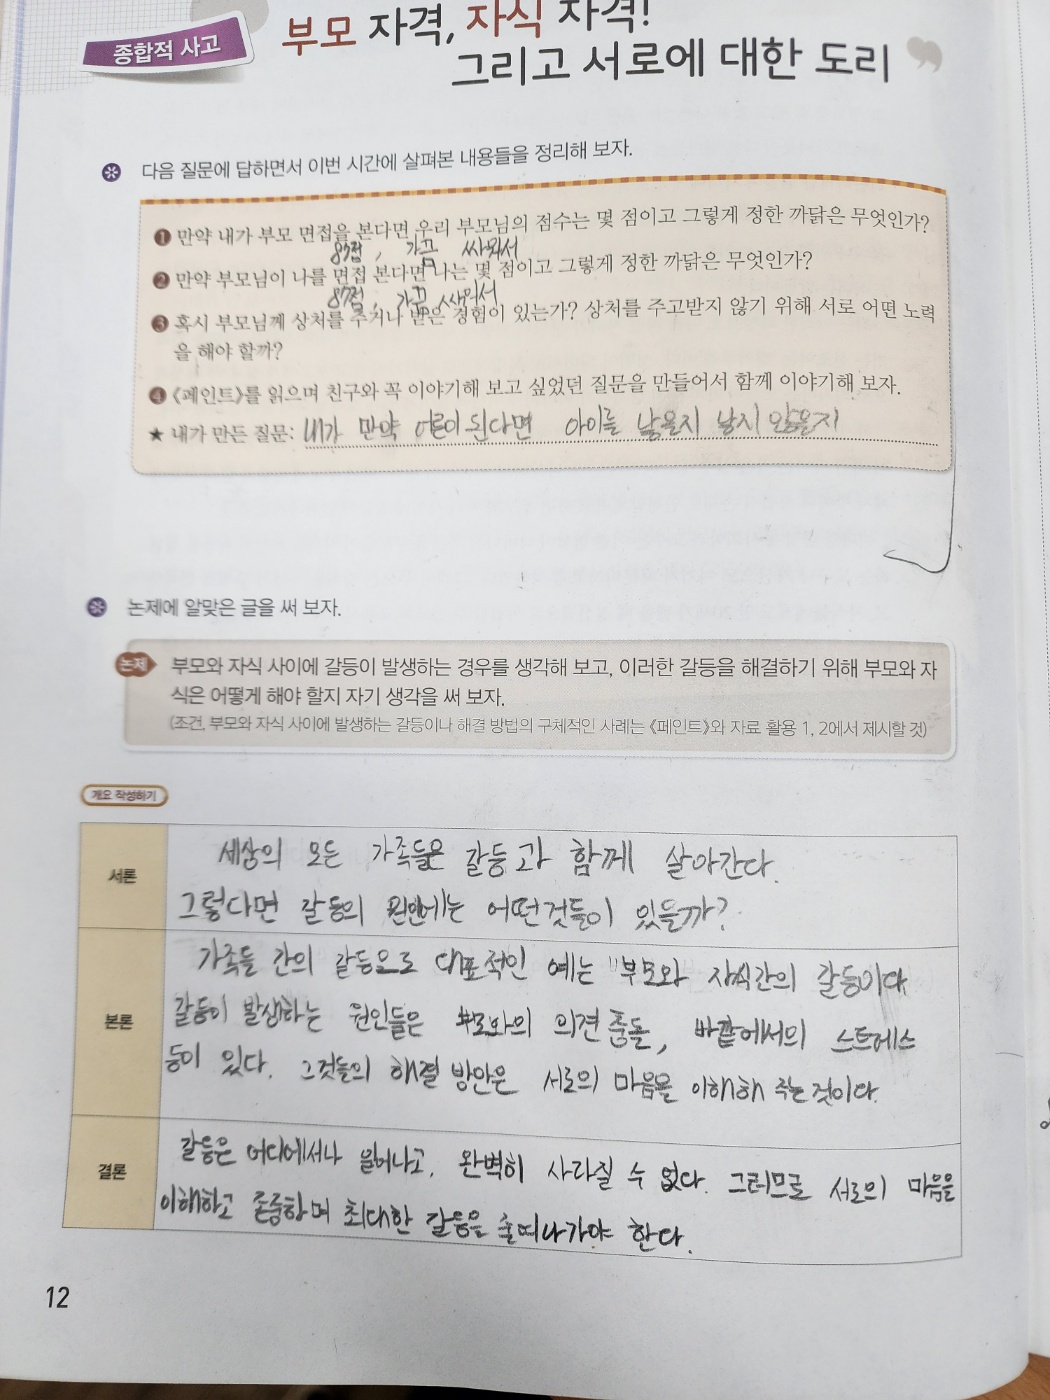 종합적 사고
부모 자격, 자식 자격!
그리고 서로에 대한 도리 ”
다음 질문에 답하면서 이번 시간에 살펴본 내용들을 정리해 보자.
❶ 만약 내가 부모 면접을 본다면 우리 부모님의 점수는 몇 점이고 그렇게 정한 까닭은 무엇인가?
87점, 가끔 싸워서
❷ 만약 부모님이 나를 면접 본다면 나는 몇 점이고 그렇게 정한 까닭은 무엇인가?
87점, 가끔 싸워서
❸ 혹시 부모님께 상처를 주거나 받은 경험이 있는가? 상처를 주고받지 않기 위해 서로 어떤 노력
을 해야 할까?
❹ 《페인트》를 읽으며 친구와 꼭 이야기해 보고 싶었던 질문을 만들어서 함께 이야기해 보자.
★ 내가 만든 질문: 내가 만약 어른이 된다면 아이를 낳을지 낳지 않을지
논제에 알맞은 글을 써 보자.
논제 부모와 자식 사이에 갈등이 발생하는 경우를 생각해 보고, 이러한 갈등을 해결하기 위해 부모와 자
식은 어떻게 해야 할지 자기 생각을 써 보자.
(조건. 부모와 자식 사이에 발생하는 갈등이나 해결 방법의 구체적인 사례는 《페인트》와 자료 활용 1, 2에서 제시할 것)
개요 작성하기
서론
세상의 모든 가족들은 갈등과 함께 살아간다.
그렇다면 갈등의 원인에는 어떤것들이 있을까?
본론
가족들 간의 갈등으로 대표적인 예는 "부모와 자식간의 갈등이다
갈등이 발생하는 원인들은 부모와의 의견 충돌, 바깥에서의 스트레스
등이 있다. 그것들의 해결 방안은 서로의 마음을 이해해 주는 것이다.
결론
갈등은 어디에서나 일어나고, 완벽히 사라질 수 없다. 그러므로 서로의 마음을
이해하고 존중하며 최대한 갈등을 줄여나가야 한다.
12